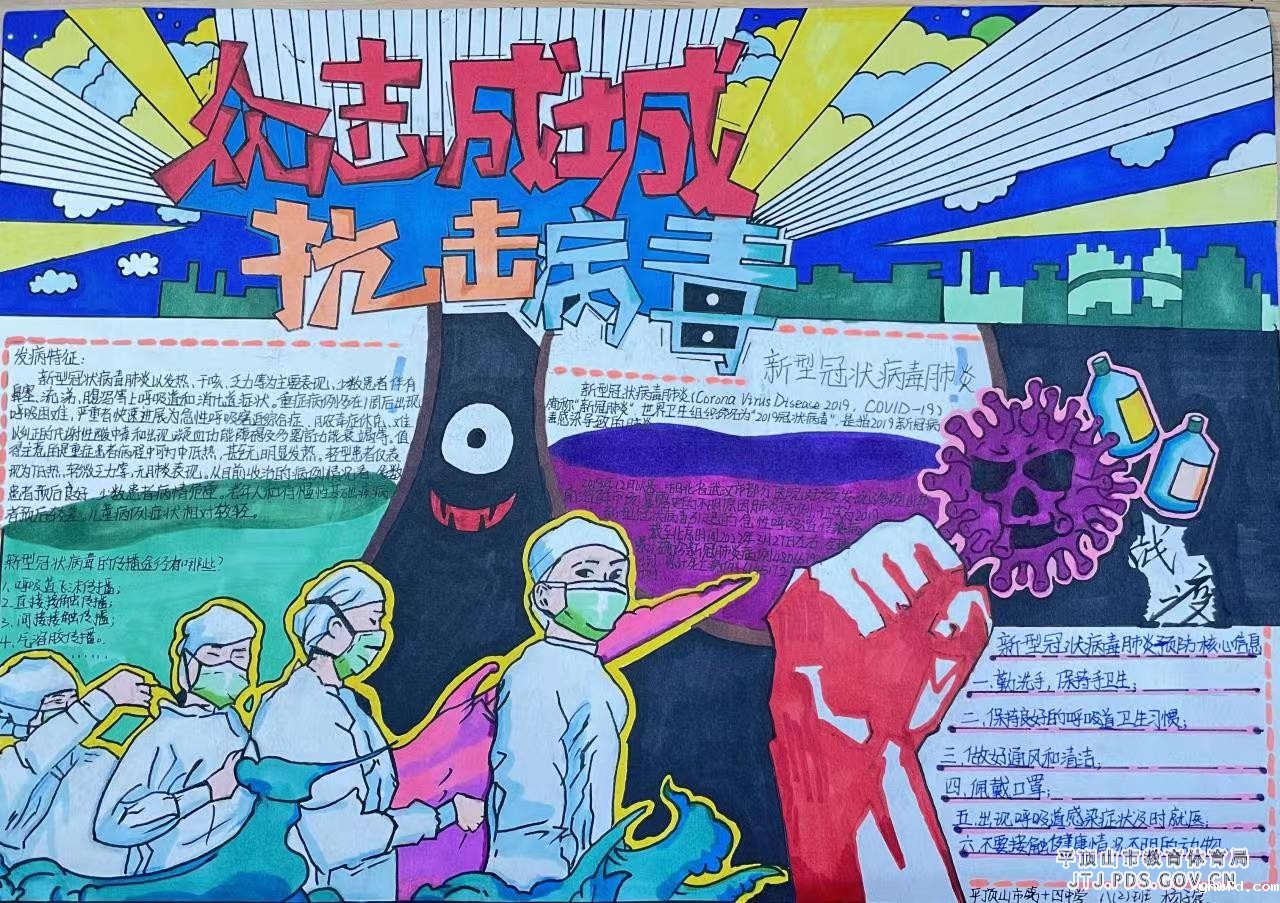 众志成城
抗击病毒
发病特征:
新型冠状病毒肺炎以发热、干咳、乏力等为主要表现,少数患者伴有
鼻塞、流涕、腹泻等上呼吸道和消化道症状。重症病例多在1周后出现
呼吸困难,严重者快速进展为急性呼吸窘迫综合征、脓毒症休克、难
以纠正的代谢性酸中毒和出现凝血功能障碍及多器官功能衰竭等。值
得注意的是重症患者病程中可为中低热,甚至无明显发热。轻型患者仅表
现为低热,轻微乏力等,无肺炎表现。从目前收治的病例情况看,多数
患者预后良好,少数患者病情危重。老年人和有慢性基础疾病
者预后较差。儿童病例症状相对较轻。
新型冠状病毒的传播途径有哪些?
1、呼吸道飞沫传播;
2、直接接触传播;
3、间接接触传播;
4、气溶胶传播。
新型冠状病毒肺炎
新型冠状病毒肺炎(Corona Virus Disease 2019, COVID-19)
简称“新冠肺炎”,世界卫生组织命名为“2019冠状病毒”,是指2019新冠病
毒感染导致的肺炎
2019年12月以来,湖北省武汉市部分医院陆续发现了多例
战
疫
新型冠状病毒肺炎预防核心信息
一.勤洗手,保持手卫生;
二.保持良好的呼吸道卫生习惯;
三.做好通风和清洁;
四.佩戴口罩;
五.出现呼吸道感染症状及时就医;
六.不要接触健康情况不明的动物
平顶山市教育体育局
JTJ.PDS.GOV.CN
平顶山市第十四中学 八(2)班